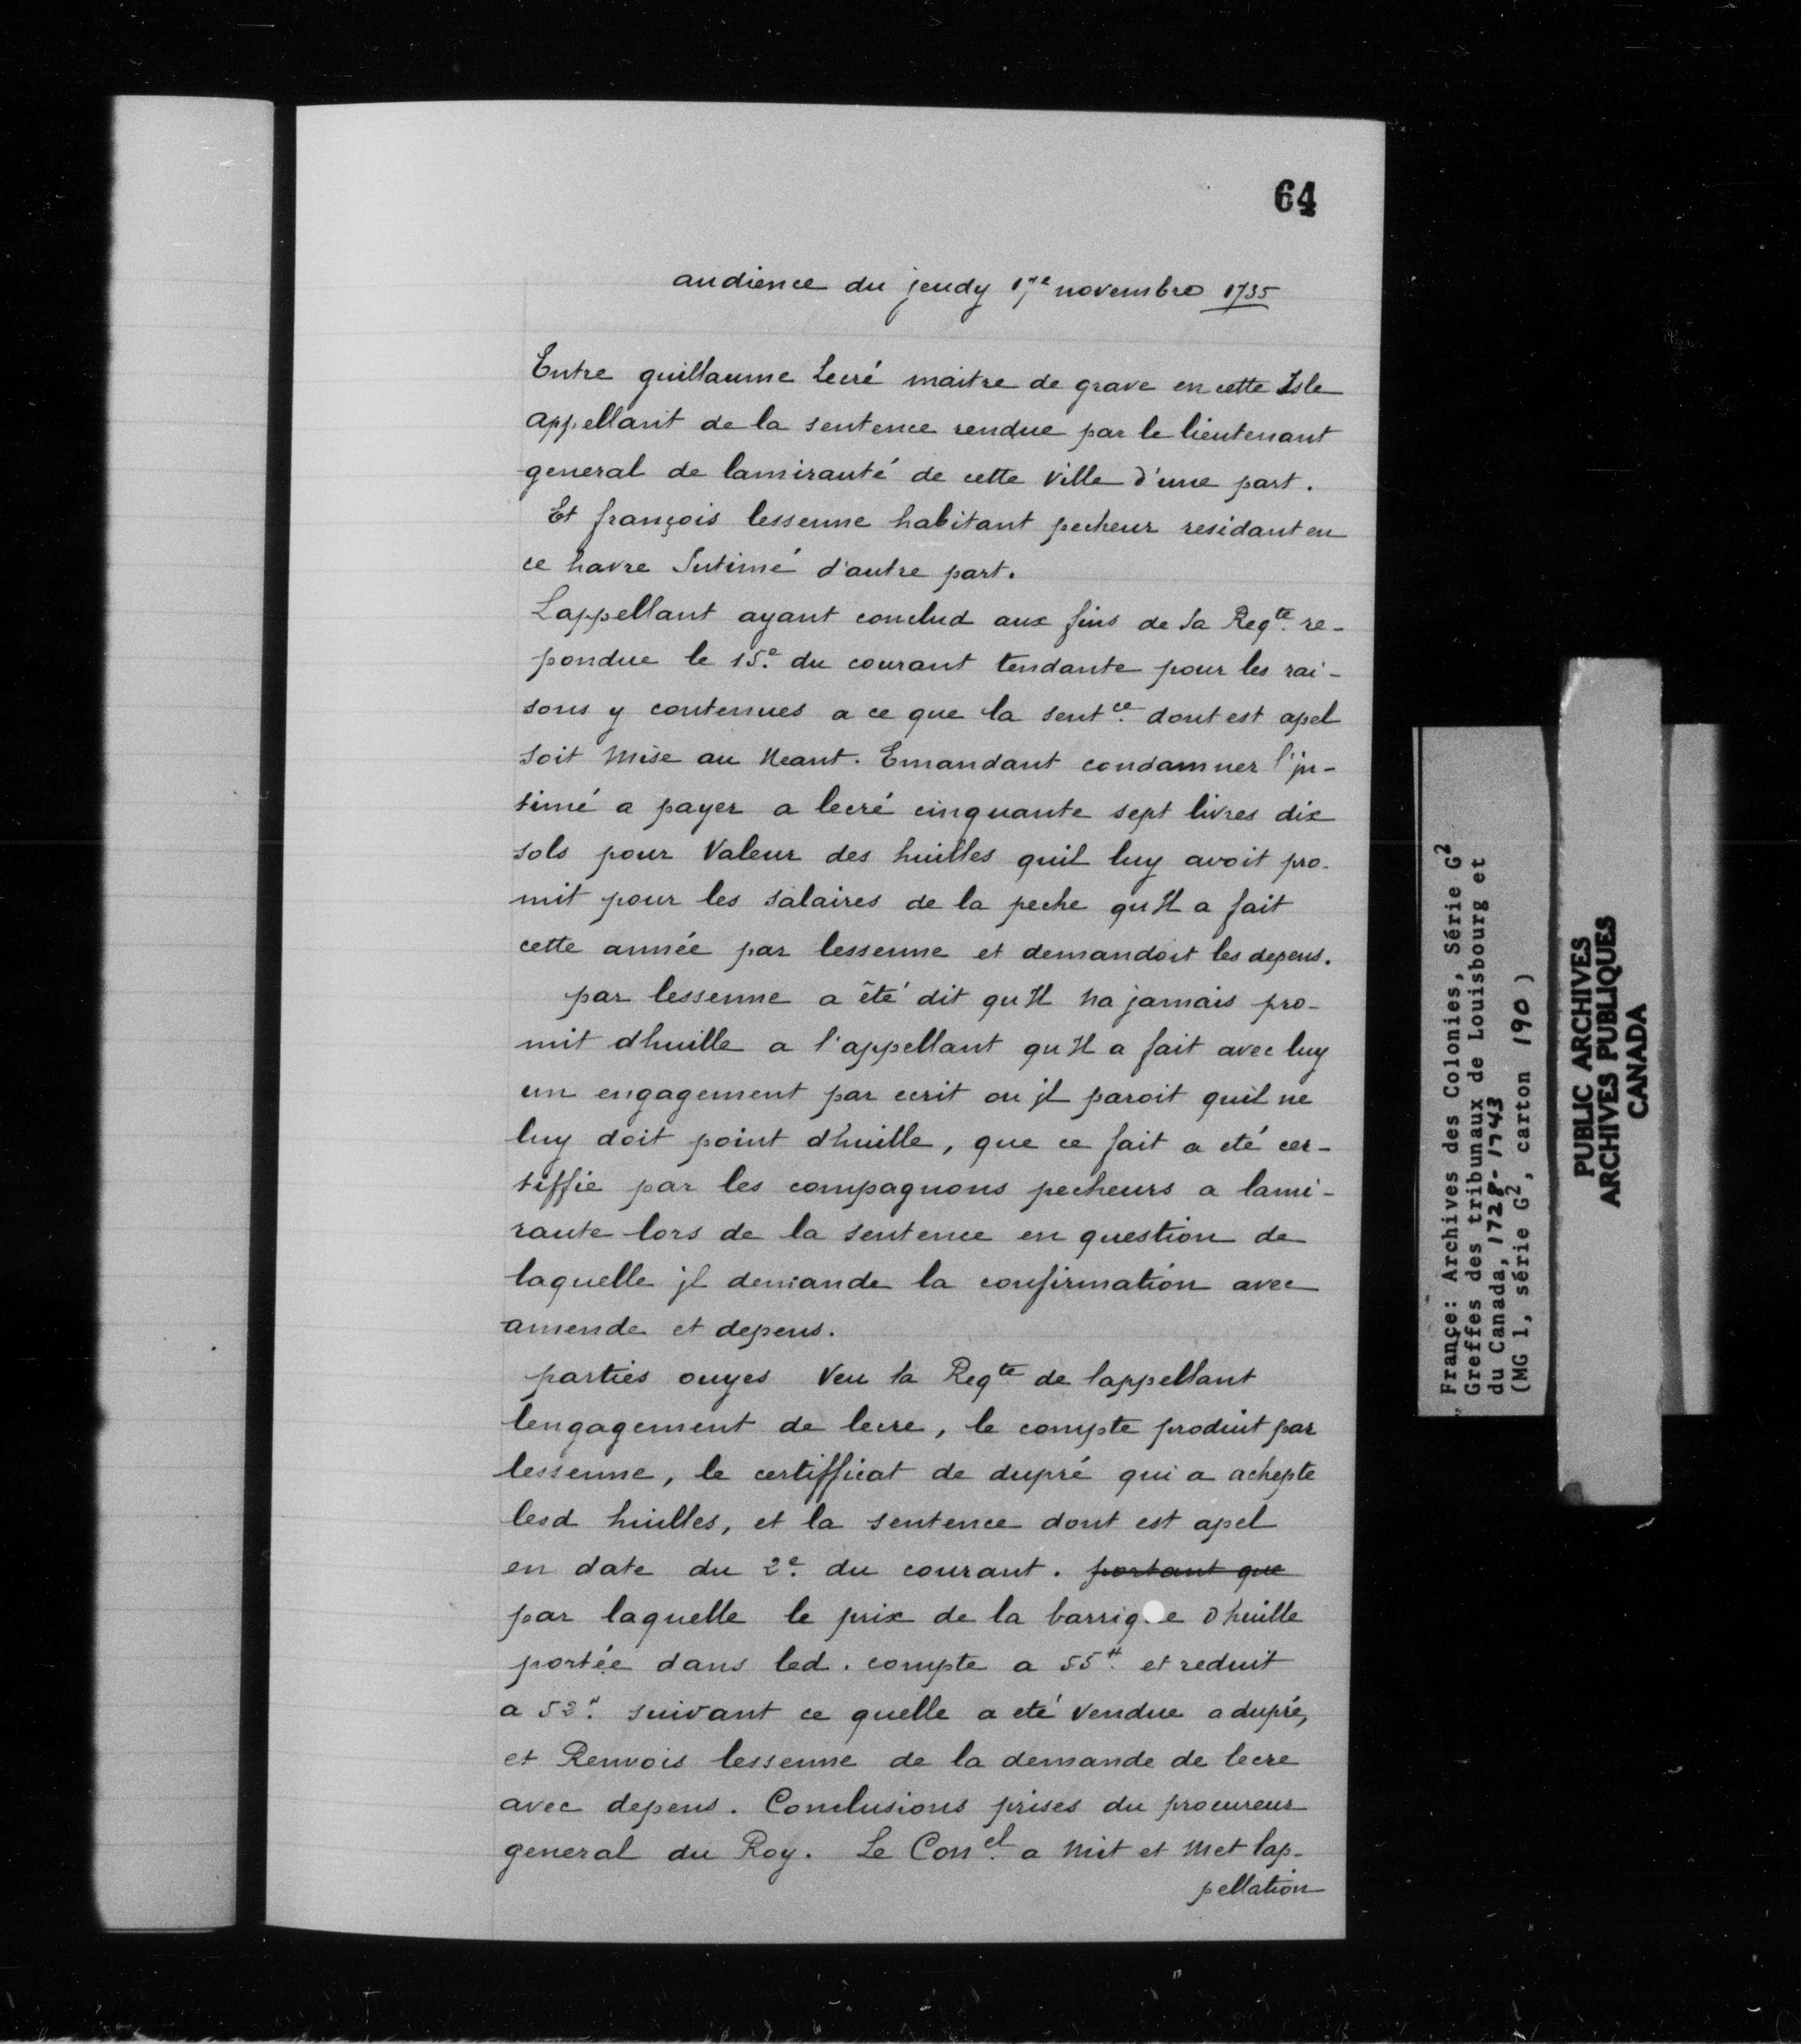 64
audience du jeudy 17e novembre 1735
Entre guillaume Lecré maitre de grave en cette Isle
appellant de la sentence rendue par le lieutenant
general de lamirauté de cette ville d'une part.
Et françois lessenne habitant pecheur residant en
ce havre Intimé d'autre part.
Lappellant ayant conclud aux fins de sa Reqte. re-
pondue le 15e. du courant tendante pour les rai-
sons y contenues a ce que la sentce. dont est apel
soit Mise au Neant. Emandant condamner l'jn-
timé a payer a lecré cinquante sept livres dix
sols pour Valeur des huilles quil luy avoit pro-
mit pour les salaires de la peche qu'Il a fait
cette année par lessenne et demandoit les depens.
par lessenne a été dit qu'Il na jamais pro-
mit dhuille a l'appellant qu'Il a fait avec luy
un engagement par ecrit ou jl paroit quil ne
luy doit point dhuille, que ce fait a eté cer-
tiffie par les compagnons pecheurs a lami-
raute lors de la sentence en question de
laquelle jl demande la confirmation avec
amende et depens.
parties ouyes Veu la Reqte de lappellant
lengagement de lecre, le compte produit par
lessenne, le certifficat de dupré qui a achepte
lesd huilles, et la sentence dont est apel
en date du 2e. du courant. portant que
par laquelle le prix de la barrique dhuille
portée dans led. compte a 55# et reduit
a 52#. suivant ce quelle a eté vendue a dupré,
et Renvois lessenne de la demande de lecre
avec depens. Conclusions prises du procureur
general du Roy. Le Conel. a Mit et Met lap-
pellation
France: Archives des Colonies, Série G2
Greffes des tribunaux de Louisbourg et
du Canada, 1728-1743
(MG 1, série G2, carton 190)
PUBLIC ARCHIVES
ARCHIVES PUBLIQUES
CANADA